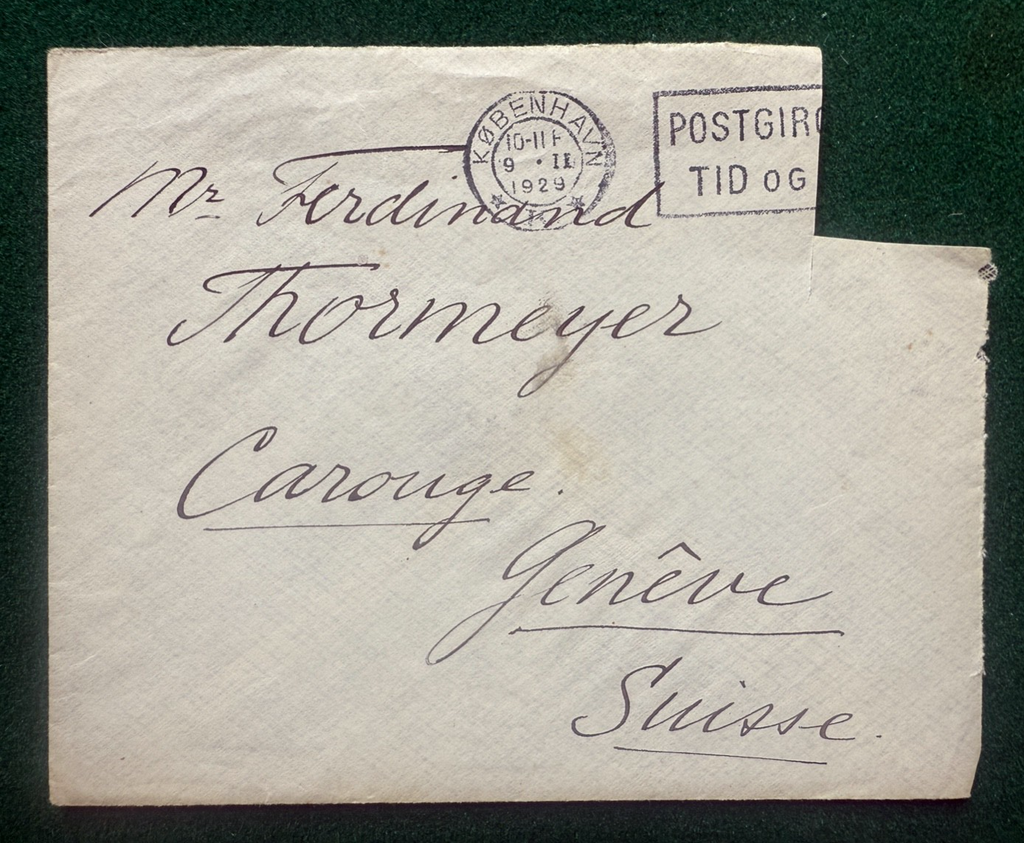 KØBENHAVN
10-11 F
9 · II
1929
POSTGIRO
TID OG
Mr Ferdinand
Thormeyer
Carouge.
Genêve
Suisse.